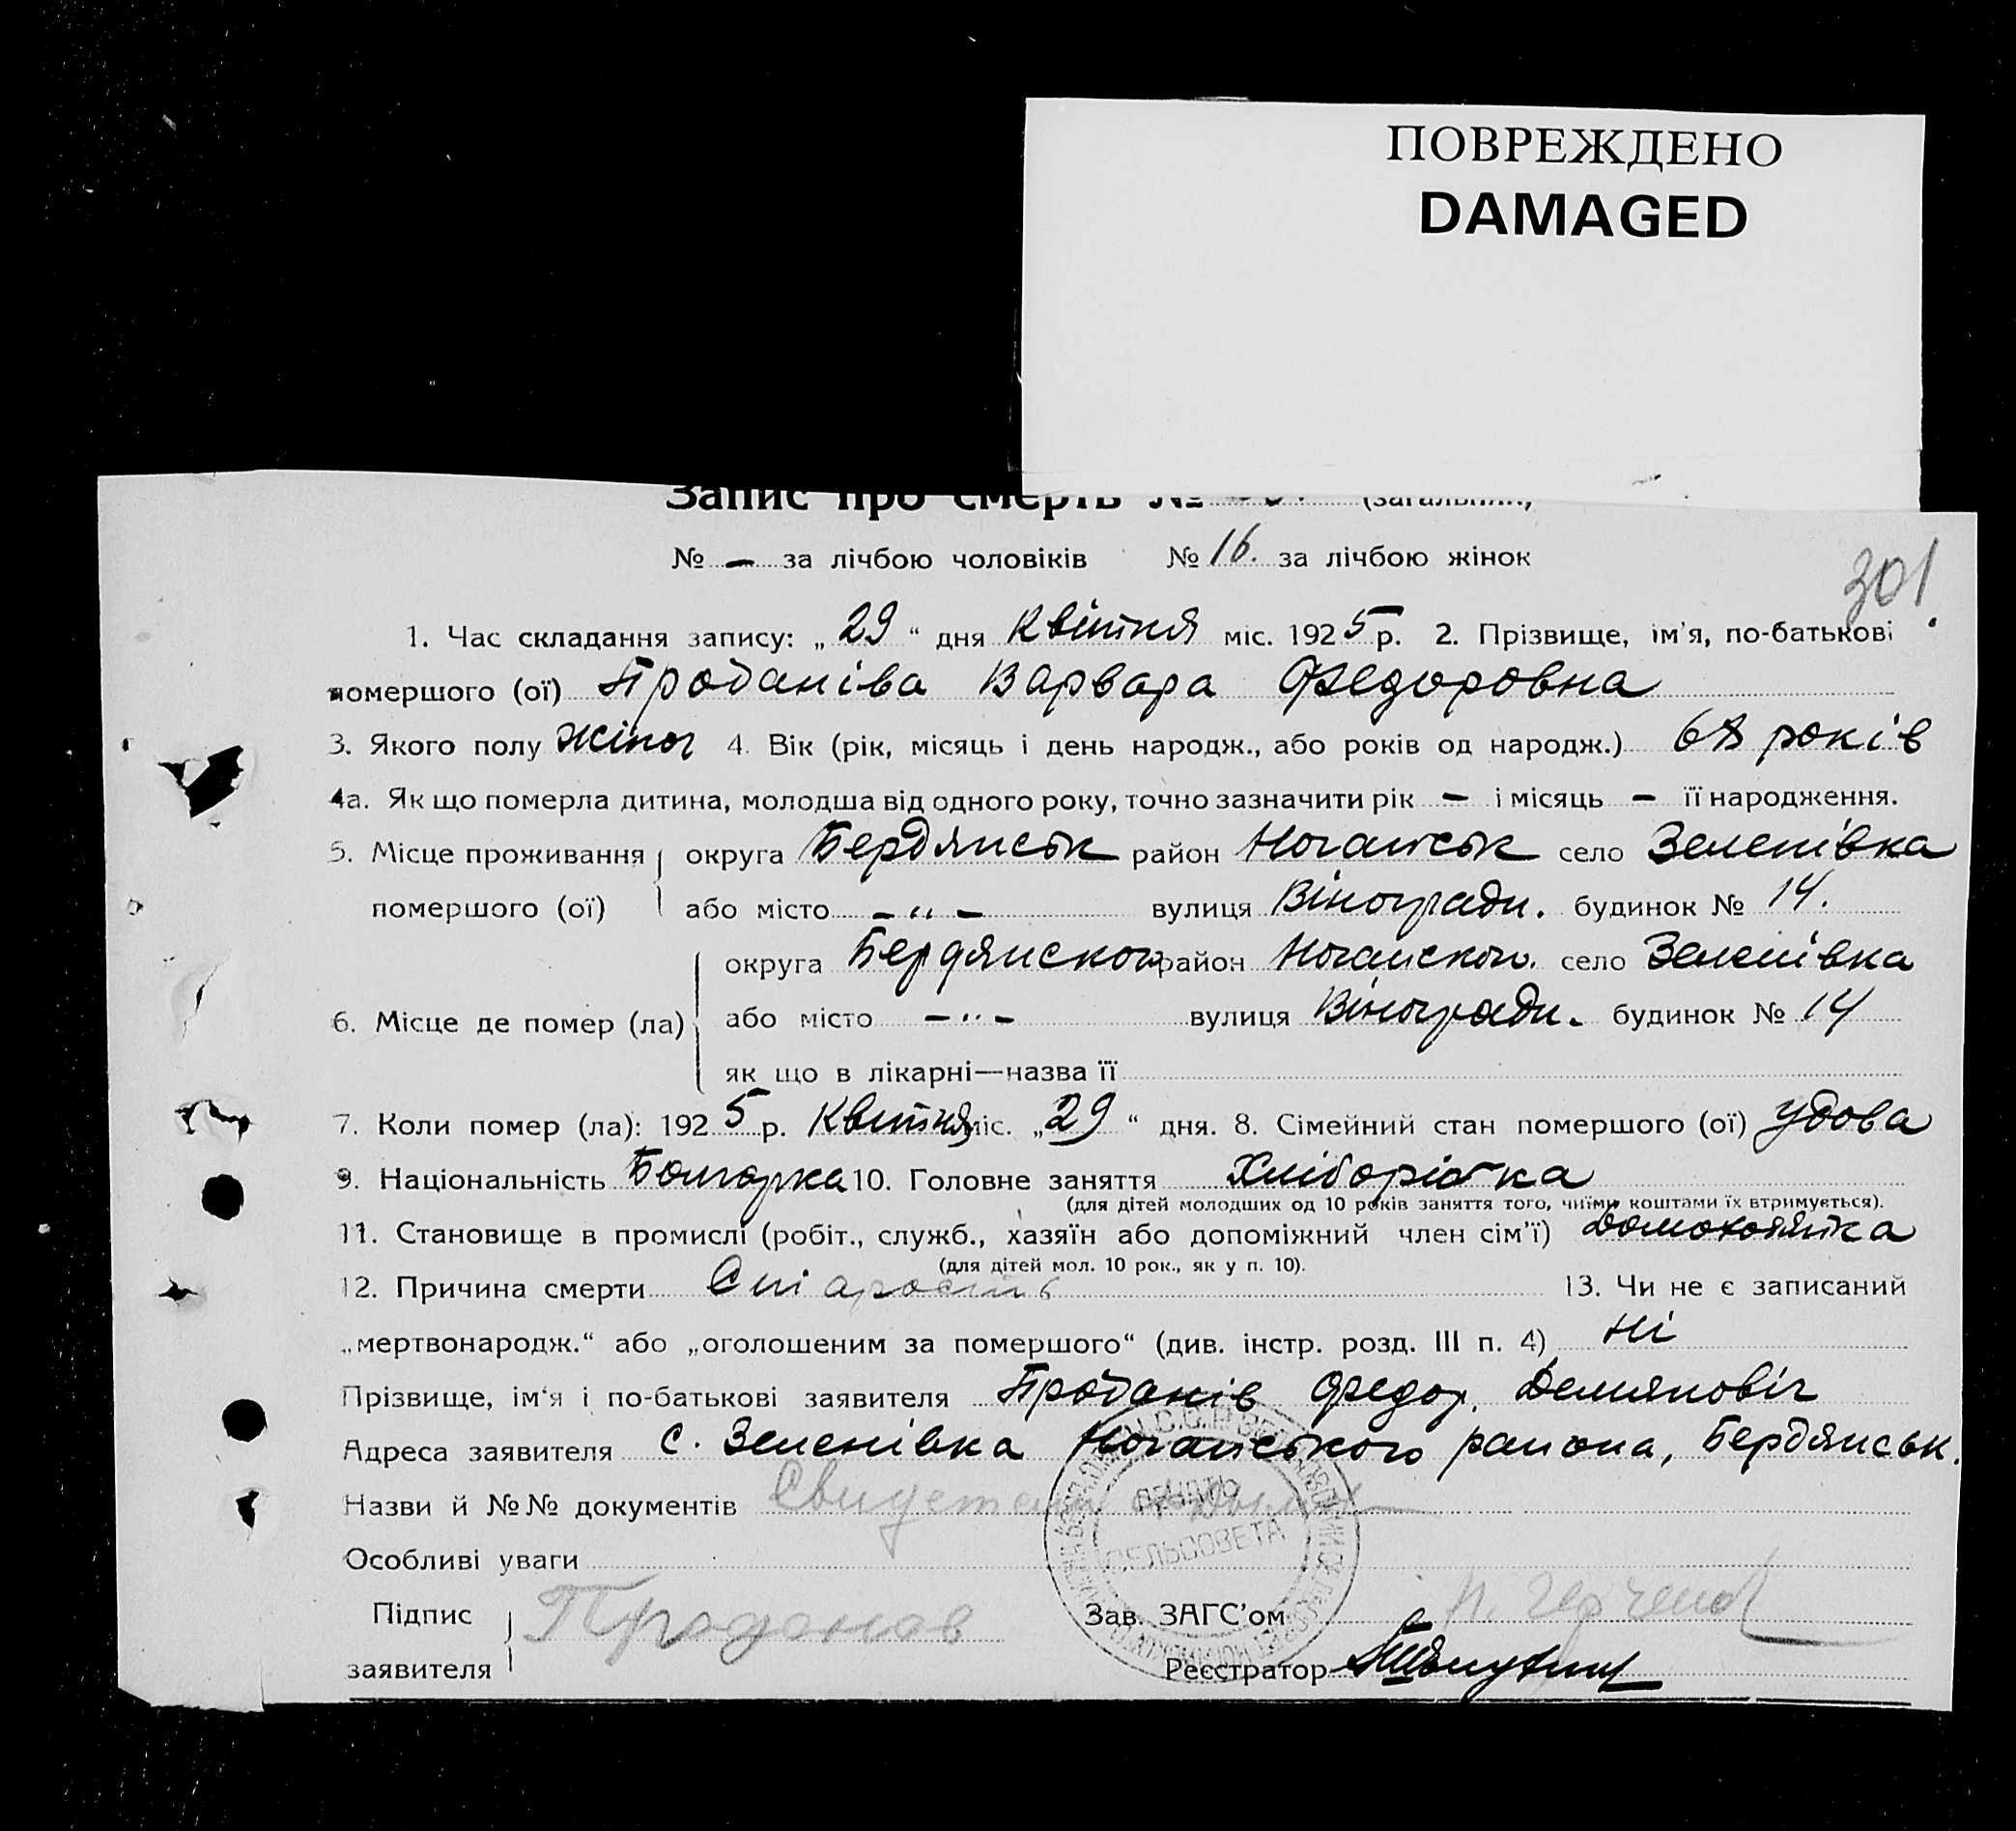 ПОВРЕЖДЕНО
DAMAGED
Запис про смерть № (загальний)
№ — за лічбою чоловіків № 16. за лічбою жінок
301
1. Час складання запису: „29“ дня Квітня міс. 1925 р. 2. Прізвище, ім'я, по-батькові
помершого (ої) Проданіва Варвара Федоровна
3. Якого полу жіноч 4. Вік (рік, місяць і день народж., або років од народж.) 68 років
4а. Як що померла дитина, молодша від одного року, точно зазначити рік — і місяць — її народження.
5. Місце проживання округа Бердянськ район Ногайськ село Зеленівка
помершого (ої) або місто —„— вулиця Виногради. будинок № 14.
округа Бердянского район Ногайского. село Зеленівка
6. Місце де помер (ла) або місто —„— вулиця Виногради. будинок № 14
як що в лікарні—назва її
7. Коли помер (ла): 1925 р. Квітня міс. „29“ дня. 8. Сімейний стан помершого (ої) удова
9. Національність Болгарка 10. Головне заняття Хліборібка
(для дітей молодших од 10 років заняття того, чиїми коштами їх втримується).
11. Становище в промислі (робіт., служб., хазяїн або допоміжний член сім'ї) домохозяйка
(для дітей мол. 10 рок., як у п. 10).
12. Причина смерти Старость 13. Чи не є записаний
„мертвонародж.“ або „оголошеним за помершого“ (див. інстр. розд. III п. 4) ні
Прізвище, ім'я і по-батькові заявителя Проданів Федор. Демяновіч
Адреса заявителя с. Зеленівка Ногайського района, Бердянськ.
Назви й №№ документів
Особливі уваги
Підпис Проданов Зав. ЗАГС'ом
заявителя Реєстратор
СЕЛЬСОВЕТА